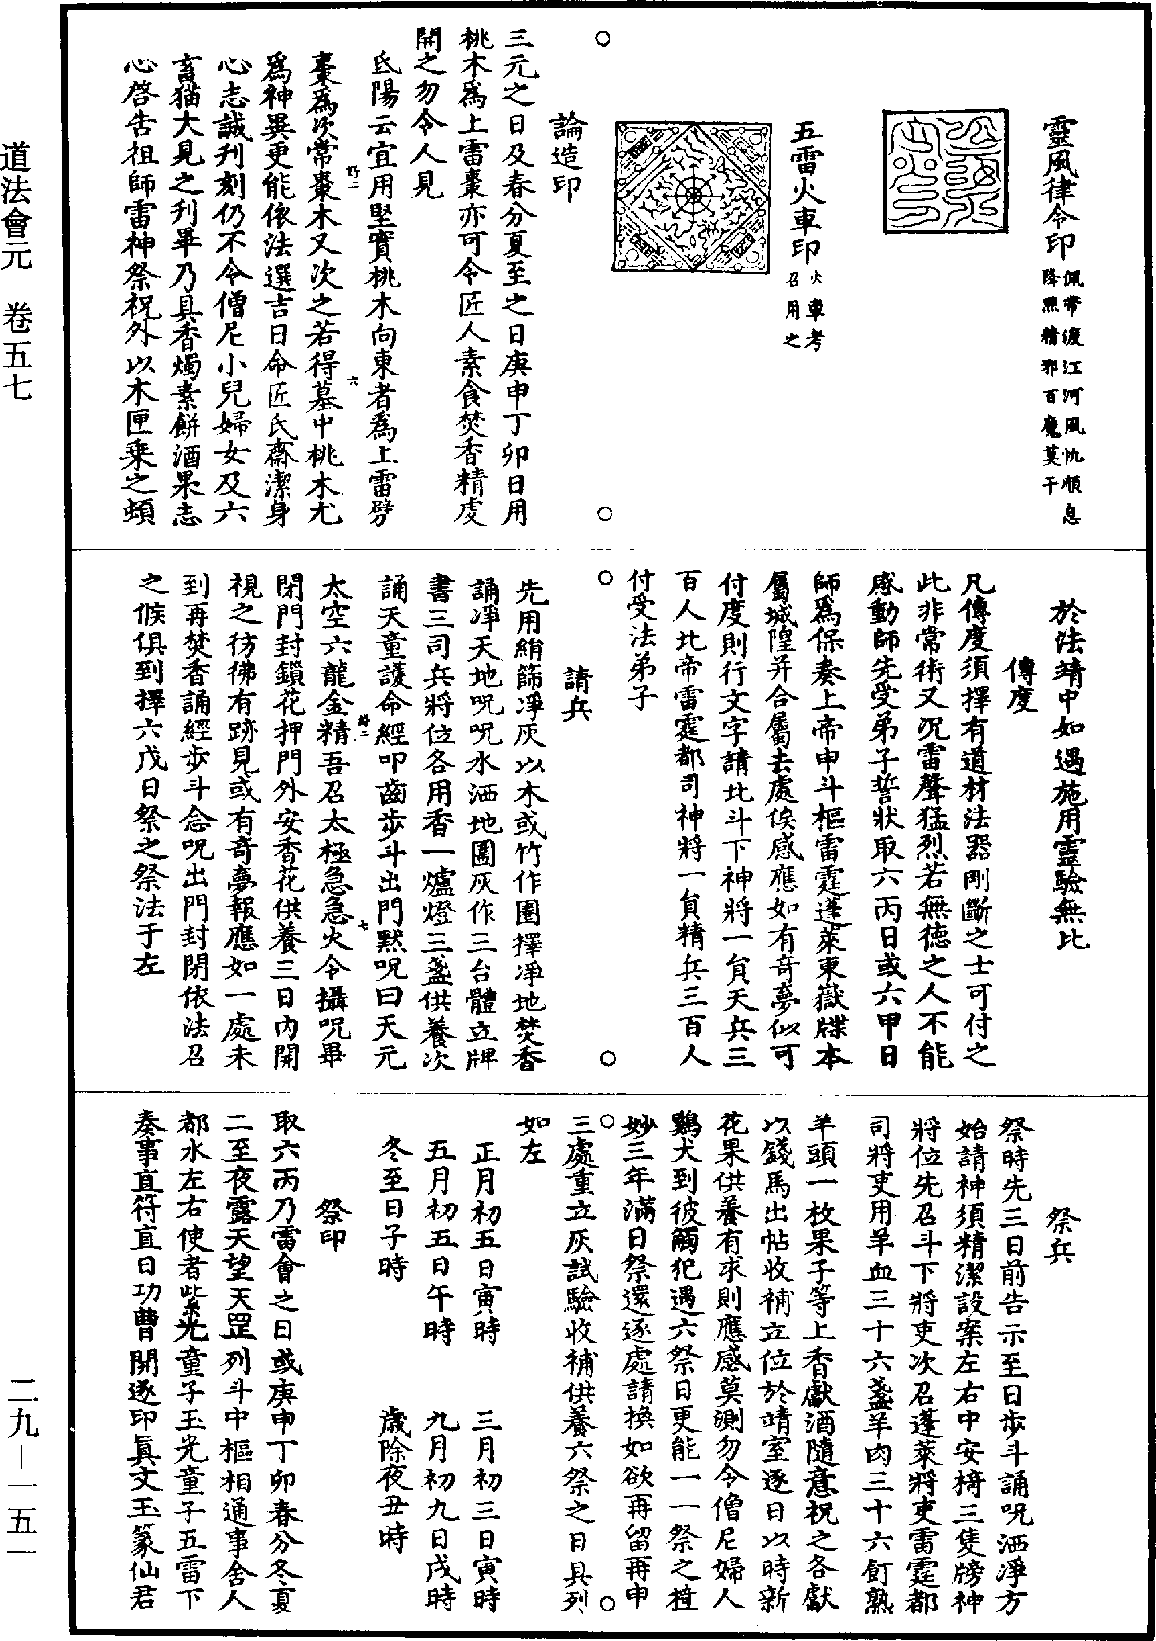 道法會元　卷五七
二九—一五一
靈風律令印
佩帶渡江河風帆順息
降照精邪百魔莫干
五雷火車印
火車考
召用之
論造印
三元之日及春分夏至之日庚申丁卯日用
桃木爲上雷棗亦可令匠人素食焚香精虔
開之勿令人見
氐陽云宜用堅實桃木向東者爲上雷劈
棗爲次常棗木又次之若得墓中桃木尤
爲神異更能依法選吉日命匠氏齋潔身
心志誠刋刻仍不令僧尼小兒婦女及六
畜猫犬見之刋畢乃具香燭素餅酒果志
心啓告祖師雷神祭祝外以木匣乘之頓
於法靖中如遇施用靈驗無比
傳度
凡傳度須擇有道材法器剛斷之士可付之
此非常術又况雷聲猛烈若無德之人不能
感動師先受弟子誓狀取六丙日或六甲日
師爲保奏上帝申斗樞雷霆蓬萊東嶽牒本
屬城隍幷合屬去處俟感應如有奇夢似可
付度則行文字請北斗下神將一員天兵三
百人北帝雷霆都司神將一員精兵三百人
付受法弟子
請兵
先用絹篩凈灰以木或竹作圈擇凈地焚香
誦凈天地呪呪水洒地圈灰作三台體立牌
書三司兵將位各用香一爐燈三盞供養次
誦天童護命經叩齒步斗出門黙呪曰天元
太空六龍金精吾召太極急急火令攝呪畢
閉門封鎖花押門外安香花供養三日內開
視之彷彿有跡見或有奇夢報應如一處未
到再焚香誦經步斗念呪出門封閉依法召
之候俱到擇六戊日祭之祭法于左
祭兵
祭時先三日前告示至日步斗誦呪洒凈方
始請神須精潔設案左右中安椅三隻牓神
將位先召斗下將吏次召蓬萊將吏雷霆都
司將吏用羊血三十六盞羊肉三十六飣熟
羊頭一枚果子等上香獻酒隨意祝之各獻
以錢馬出帖收補立位於靖室逐日以時新
花果供養有求則應感莫測勿令僧尼婦人
鷄犬到彼觸犯遇六祭日更能一一祭之㨗
妙三年滿日祭還逐處請換如欲再留再申
三處重立灰試驗收補供養六祭之日具列
如左
正月初五日寅時　三月初三日寅時
五月初五日午時　九月初九日戌時
冬至日子時　歲除夜丑時
祭印
取六丙乃雷會之日或庚申丁卯春分冬夏
二至夜露天望天罡列斗中樞相通事舍人
都水左右使者紫光童子玉光童子五雷下
奏事直符直日功曹開逐印眞文玉篆仙君